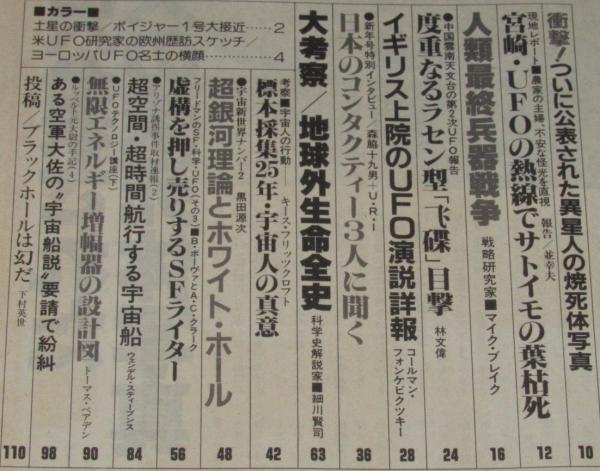 ■カラー■
土星の衝撃/ボイジャー1号大接近……2
米UFO研究家の欧州歴訪スケッチ/
ヨーロッパUFO名士の横顔…………4
衝撃!ついに公表された異星人の焼死体写真 10
現地レポート■農家の主婦、不安な怪光を直視 報告/並幸夫
宮崎・UFOの熱線でサトイモの葉枯死 12
人類最終兵器戦争 戦略研究家■マイク・ブレイク 16
●中国雲南天文台の第2次UFO報告
度重なるラセン型「卡碟」目撃 林文偉 24
イギリス上院のUFO演説詳報 コールマン・フォンケビクツキー 28
●新年号特別インタビュー/森脇十九男+U・R・I
日本のコンタクティー3人に聞く 36
大考察/地球外生命全史 科学史解説家■細川賢司 63
考察■宇宙人の行動
標本採集25年・宇宙人の真意 キース・フリッツクロフト 42
●宇宙新世界ナンバー2 黒田源次
超銀河理論とホワイト・ホール 48
フリードマンのSF・科学・UFO(その3)■B・ボーヴァとA・C・クラーク
虚構を押し売りするSFライター 56
●アリゾナ誘拐事件取材速報(2)
超空間・超時間航行する宇宙船 ウェンデル・スティーブンス 84
●UFOテクノロジー講座(下)
無限エネルギー増幅器の設計図 トーマス・ベアデン 90
●ルッペルト元大尉の手記(4)
ある空軍大佐の“宇宙船説”要請で紛糾 98
投稿/ブラックホールは幻だ 下村英世 110